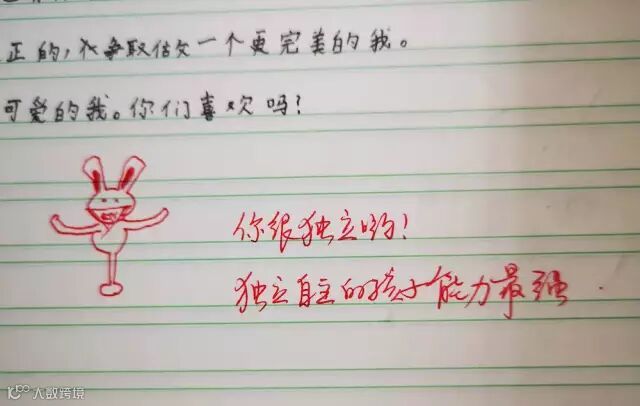 正的,我争取做一个更完美的我。
可爱的我。你们喜欢吗?
你很独立哟!
独立自主的孩子能力最强.
大数跨境